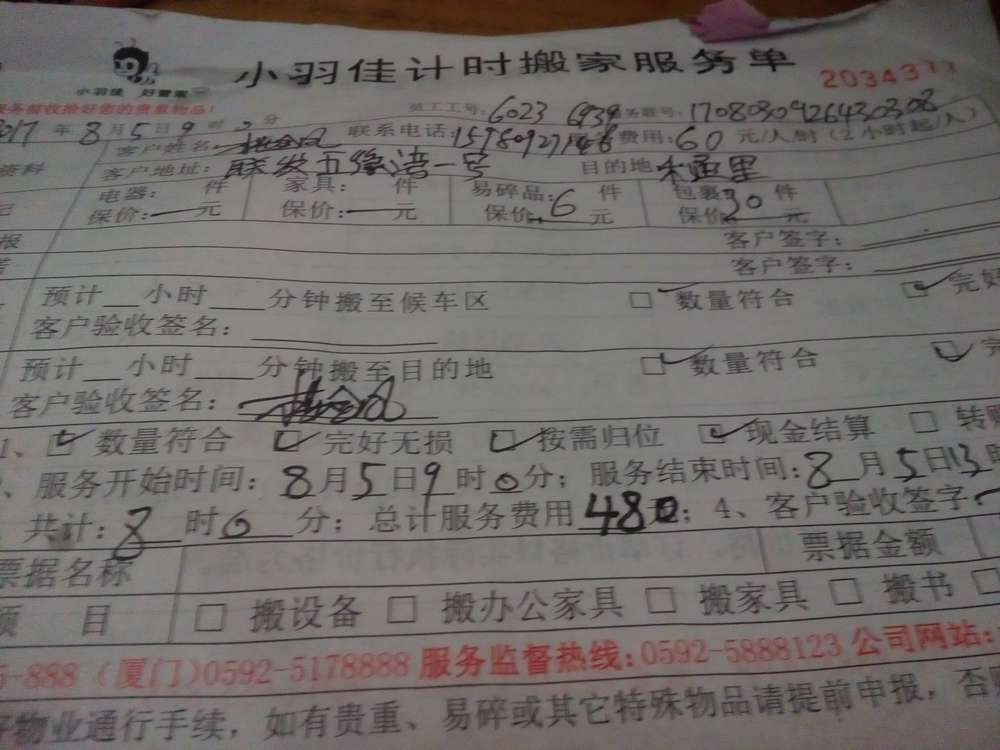 小羽佳计时搬家服务单
小羽佳 好管家 203437
务前收拾好您的贵重物品! 员工工号: 6023 6939 务联号: 17080309426430308
2017 年 8 月 5 日 9 时 分
客户姓名: 联系电话: 费用: 60 元/人/时 (2小时起/人)
资料 客户地址: 联发五缘湾一号 目的地
电器: 件 家具: 件 易碎品: 6 件 包裹 30 件
保价: 元 保价: 元 保价 元 保价 元
报 客户签字:
客户签字:
预计 小时 分钟搬至候车区 数量符合 完好
客户验收签名:
预计 小时 分钟搬至目的地 数量符合 完
客户验收签名:
1、 数量符合 完好无损 按需归位 现金结算 转
、服务开始时间: 8月5日9时0分; 服务结束时间: 8月5日13
共计: 8 时 0 分; 总计服务费用 480; 4、客户验收签字
票据名称 票据金额
项 目 搬设备 搬办公家具 搬家具 搬书
5-888 (厦门)0592-5178888 服务监督热线:0592-5888123 公司网站:
好物业通行手续, 如有贵重、易碎或其它特殊物品请提前申报, 否